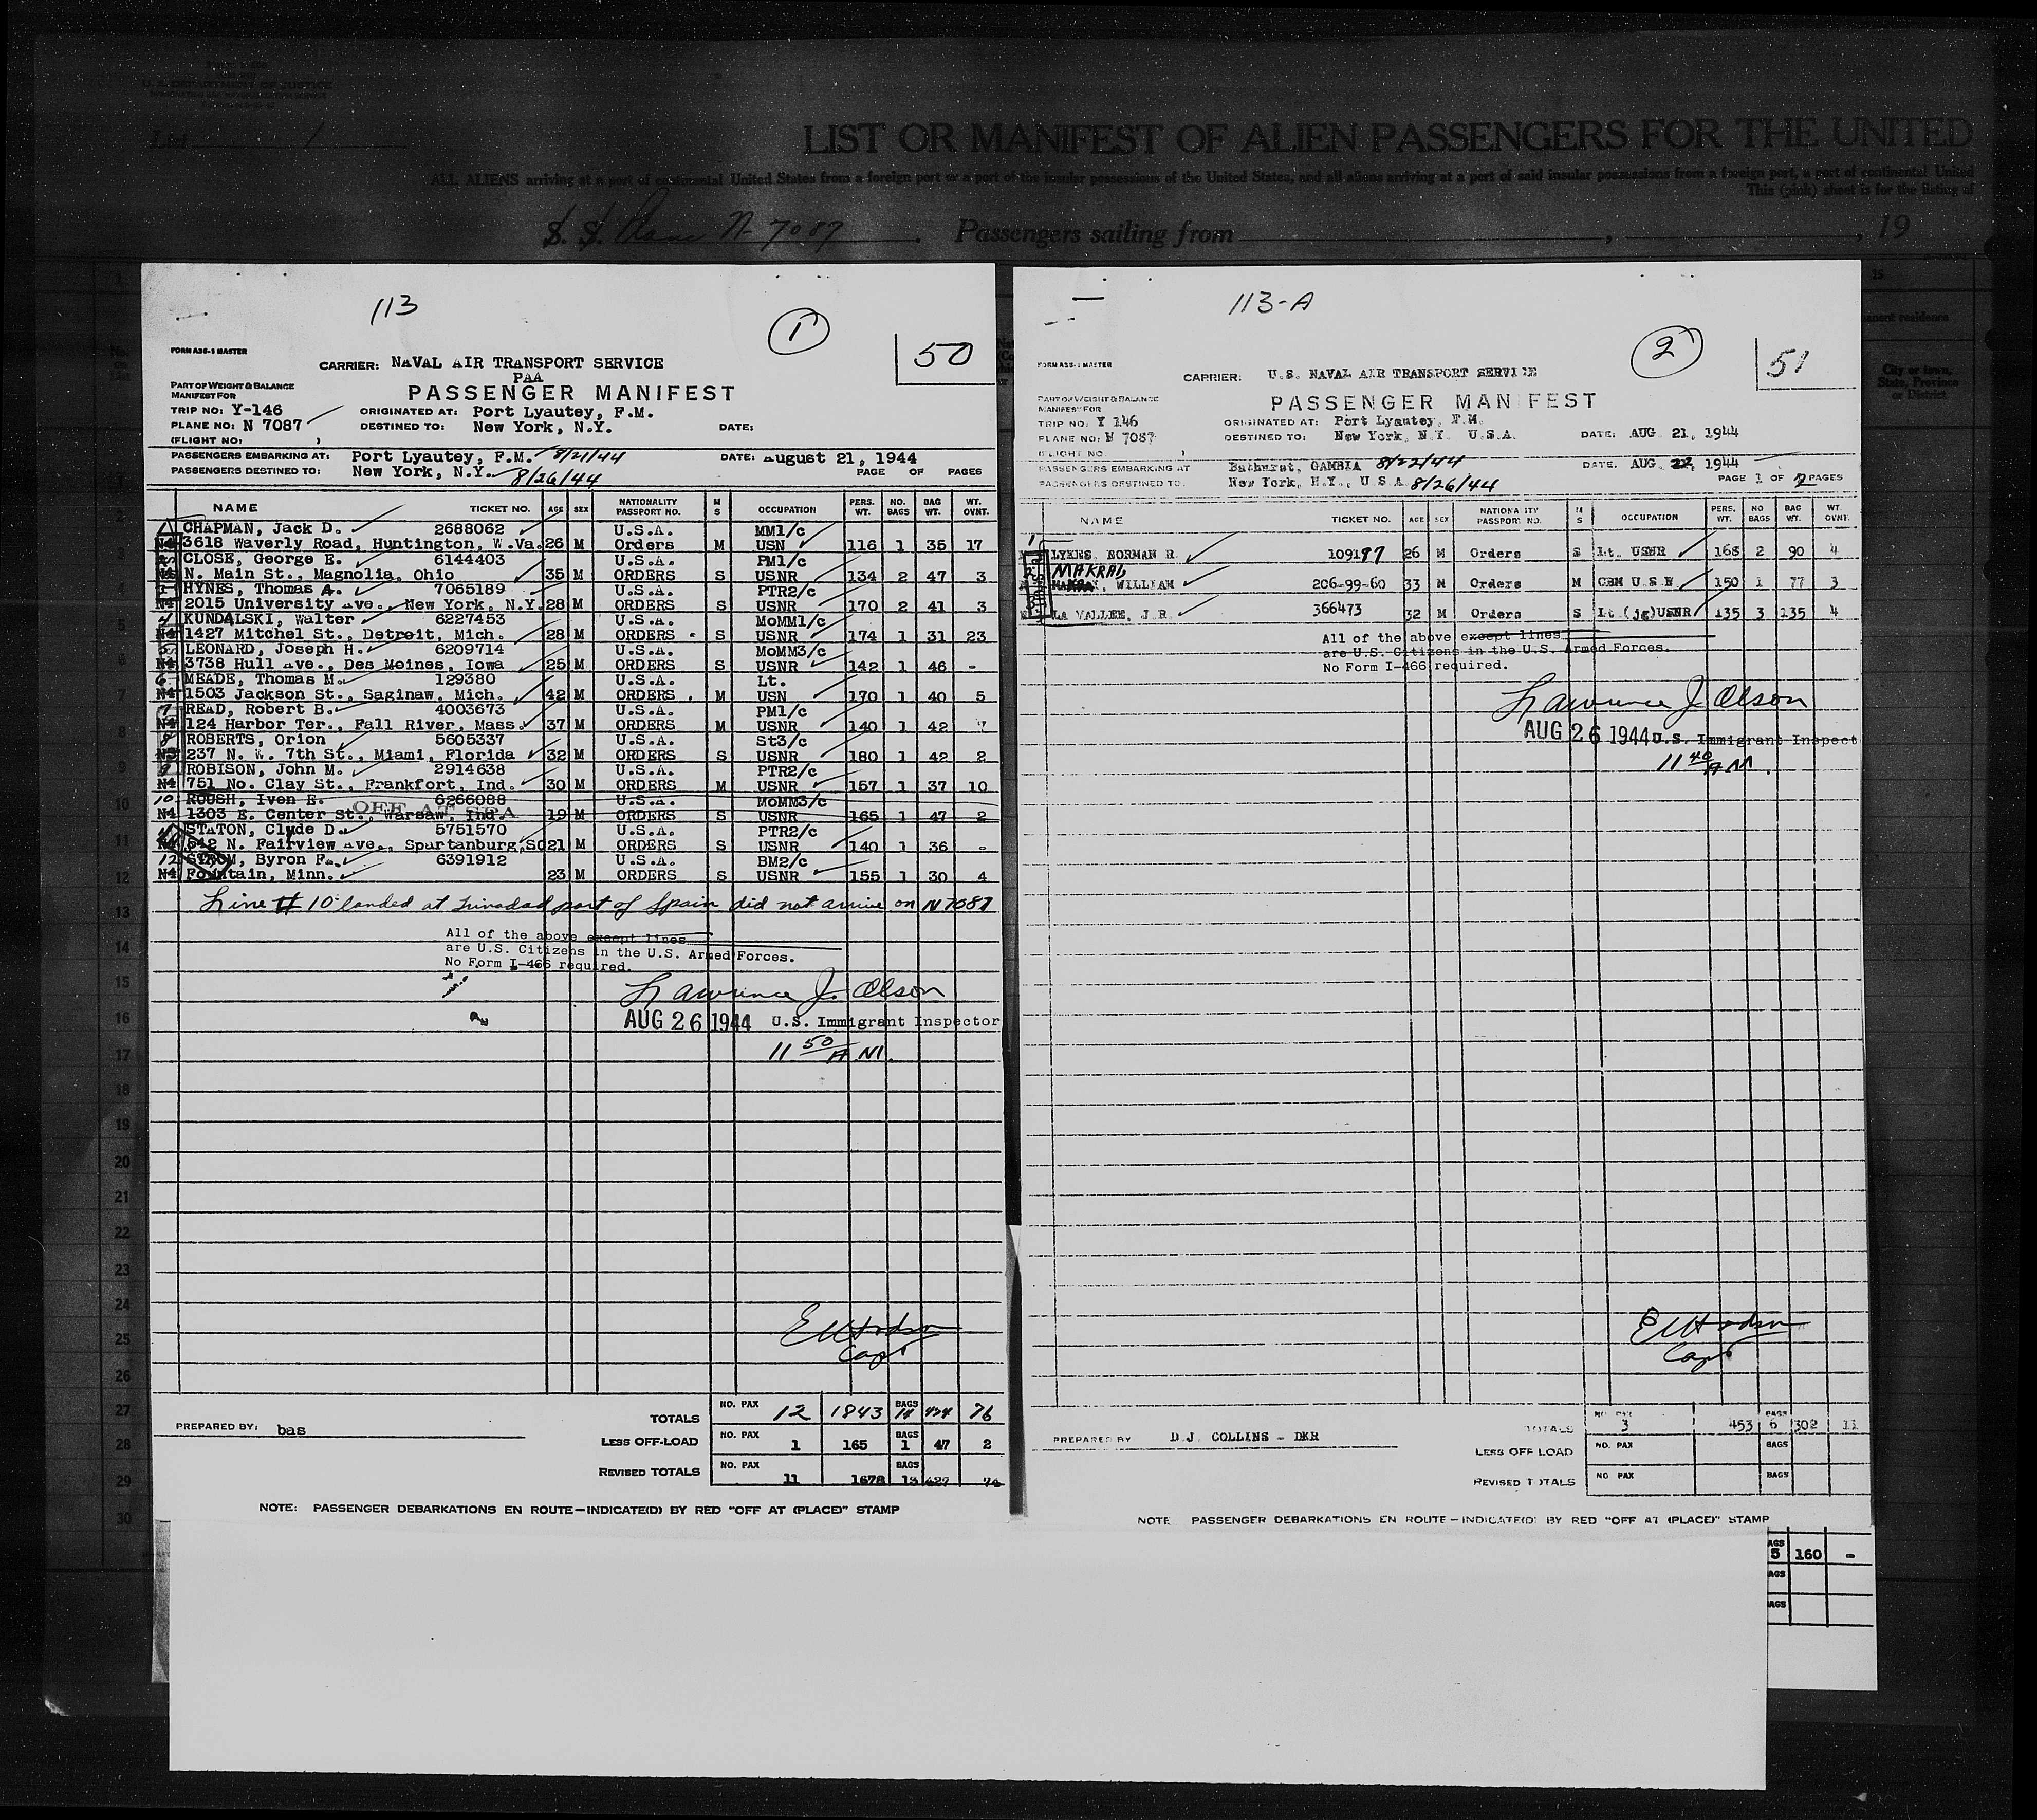 U.S. DEPARTMENT OF JUSTICE
List 1
LIST OR MANIFEST OF ALIEN PASSENGERS FOR THE UNITED
ALL ALIENS arriving at a port of continental United States from a foreign port or a port of the insular possessions of the United States, and all aliens arriving at a port of said insular possessions from a foreign port, a port of continental United
This (pink) sheet is for the listing of
S. S. Plane N-7087 Passengers sailing from , , 19
113
1
50
FORM A36-1 MASTER
CARRIER: NAVAL AIR TRANSPORT SERVICE
PAA
PART OF WEIGHT & BALANCE
MANIFEST FOR
PASSENGER MANIFEST
TRIP NO: Y-146 ORIGINATED AT: Port Lyautey, F.M.
PLANE NO: N 7087 DESTINED TO: New York, N.Y. DATE:
(FLIGHT NO: )
PASSENGERS EMBARKING AT: Port Lyautey, F.M. 8/21/44 DATE: August 21, 1944
PASSENGERS DESTINED TO: New York, N.Y. 8/26/44 PAGE OF PAGES
NAME TICKET NO. AGE SEX NATIONALITY PASSPORT NO. M S OCCUPATION PERS. WT. NO. BAGS BAG WT. WT. OVNT.
1 CHAPMAN, Jack D. 2688062 U.S.A. MM1/c
N4 3618 Waverly Road, Huntington, W.Va. 26 M Orders M USN 116 1 35 17
2 CLOSE, George E. 6144403 U.S.A. PM1/c
N4 N. Main St., Magnolia, Ohio 35 M ORDERS S USNR 134 2 47 3
3 HYNES, Thomas A. 7065189 U.S.A. PTR2/c
N4 2015 University Ave., New York, N.Y. 28 M ORDERS S USNR 170 2 41 3
4 KUNDALSKI, Walter 6227453 U.S.A. MoMM1/c
N4 1427 Mitchel St., Detroit, Mich. 28 M ORDERS S USNR 174 1 31 23
5 LEONARD, Joseph H. 6209714 U.S.A. MoMM3/c
N4 3738 Hull Ave., Des Moines, Iowa 25 M ORDERS S USNR 142 1 46 -
6 MEADE, Thomas M. 129380 U.S.A. Lt.
N4 1503 Jackson St., Saginaw, Mich. 42 M ORDERS M USN 170 1 40 5
7 READ, Robert B. 4003673 U.S.A. PM1/c
N4 124 Harbor Ter., Fall River, Mass. 37 M ORDERS M USNR 140 1 42 7
8 ROBERTS, Orion 5605337 U.S.A. St3/c
N3 237 N. W. 7th St., Miami, Florida 32 M ORDERS S USNR 180 1 42 2
9 ROBISON, John M. 2914638 U.S.A. PTR2/c
N4 751 No. Clay St., Frankfort, Ind. 30 M ORDERS M USNR 157 1 37 10
10 ROUSH, Iven E. 6266088 U.S.A. MoMM3/c
OFF AT SPA
N4 1303 E. Center St., Warsaw, Ind. 19 M ORDERS S USNR 165 1 47 2
STATON, Clyde D. 5751570 U.S.A. PTR2/c
N4 642 N. Fairview Ave., Spartanburg, SC 21 M ORDERS S USNR 140 1 36 -
12 STROM, Byron F. 6391912 U.S.A. BM2/c
N4 Fountain, Minn. 23 M ORDERS S USNR 155 1 30 4
Line # 10 landed at Trinadad port of Spain did not arrive on N 7087
All of the above except lines
are U.S. Citizens in the U.S. Armed Forces.
No Form I-466 required.
Lawrence J. Olson
AUG 26 1944 U.S. Immigrant Inspector
11 50 A.M.
EWHodson
Capt
TOTALS NO. PAX 12 1843 BAGS 14 474 76
PREPARED BY: bas
LESS OFF-LOAD NO. PAX 1 165 BAGS 1 47 2
REVISED TOTALS NO. PAX 11 1678 BAGS 13 427 74
NOTE: PASSENGER DEBARKATIONS EN ROUTE—INDICATE(D) BY RED "OFF AT (PLACE)" STAMP
113-A
2
51
FORM A36-1 MASTER
CARRIER: U.S. NAVAL AIR TRANSPORT SERVICE
PART OF WEIGHT & BALANCE
MANIFEST FOR
PASSENGER MANIFEST
TRIP NO: Y 146 ORIGINATED AT: Port Lyautey, F.M.
PLANE NO: N 7087 DESTINED TO: New York, N.Y. U.S.A. DATE: AUG 21, 1944
(FLIGHT NO. )
PASSENGERS EMBARKING AT Bathurst, GAMBIA 8/22/44 DATE. AUG 22, 1944
PASSENGERS DESTINED TO: New York, N.Y., U.S.A. 8/26/44 PAGE 1 OF 2 PAGES
NAME TICKET NO. AGE SEX NATIONALITY PASSPORT NO. M S OCCUPATION PERS. WT. NO BAGS BAG WT. WT OVNT.
1 LYKES, NORMAN R. 109197 26 M Orders S Lt. USNR 168 2 90 4
2 MAKRAD, WILLIAM 206-99-60 33 M Orders M CBM U.S.N. 150 1 77 3
LA VALLEE, J.R. 366473 32 M Orders S Lt (jg) USNR 135 3 135 4
All of the above except lines
are U.S. Citizens in the U.S. Armed Forces.
No Form I-466 required.
Lawrence J. Olson
AUG 26 1944 U.S. Immigrant Inspect
11 40 A.M.
EWHodson
Capt
TOTALS NO. PAX 3 453 BAGS 6 302 11
PREPARED BY D.J. COLLINS - DKR
LESS OFF LOAD NO. PAX BAGS
REVISED TOTALS NO PAX BAGS
NOTE PASSENGER DEBARKATIONS EN ROUTE—INDICATE(D) BY RED "OFF AT (PLACE)" STAMP
AGS 5 160 -
AGS
AGS